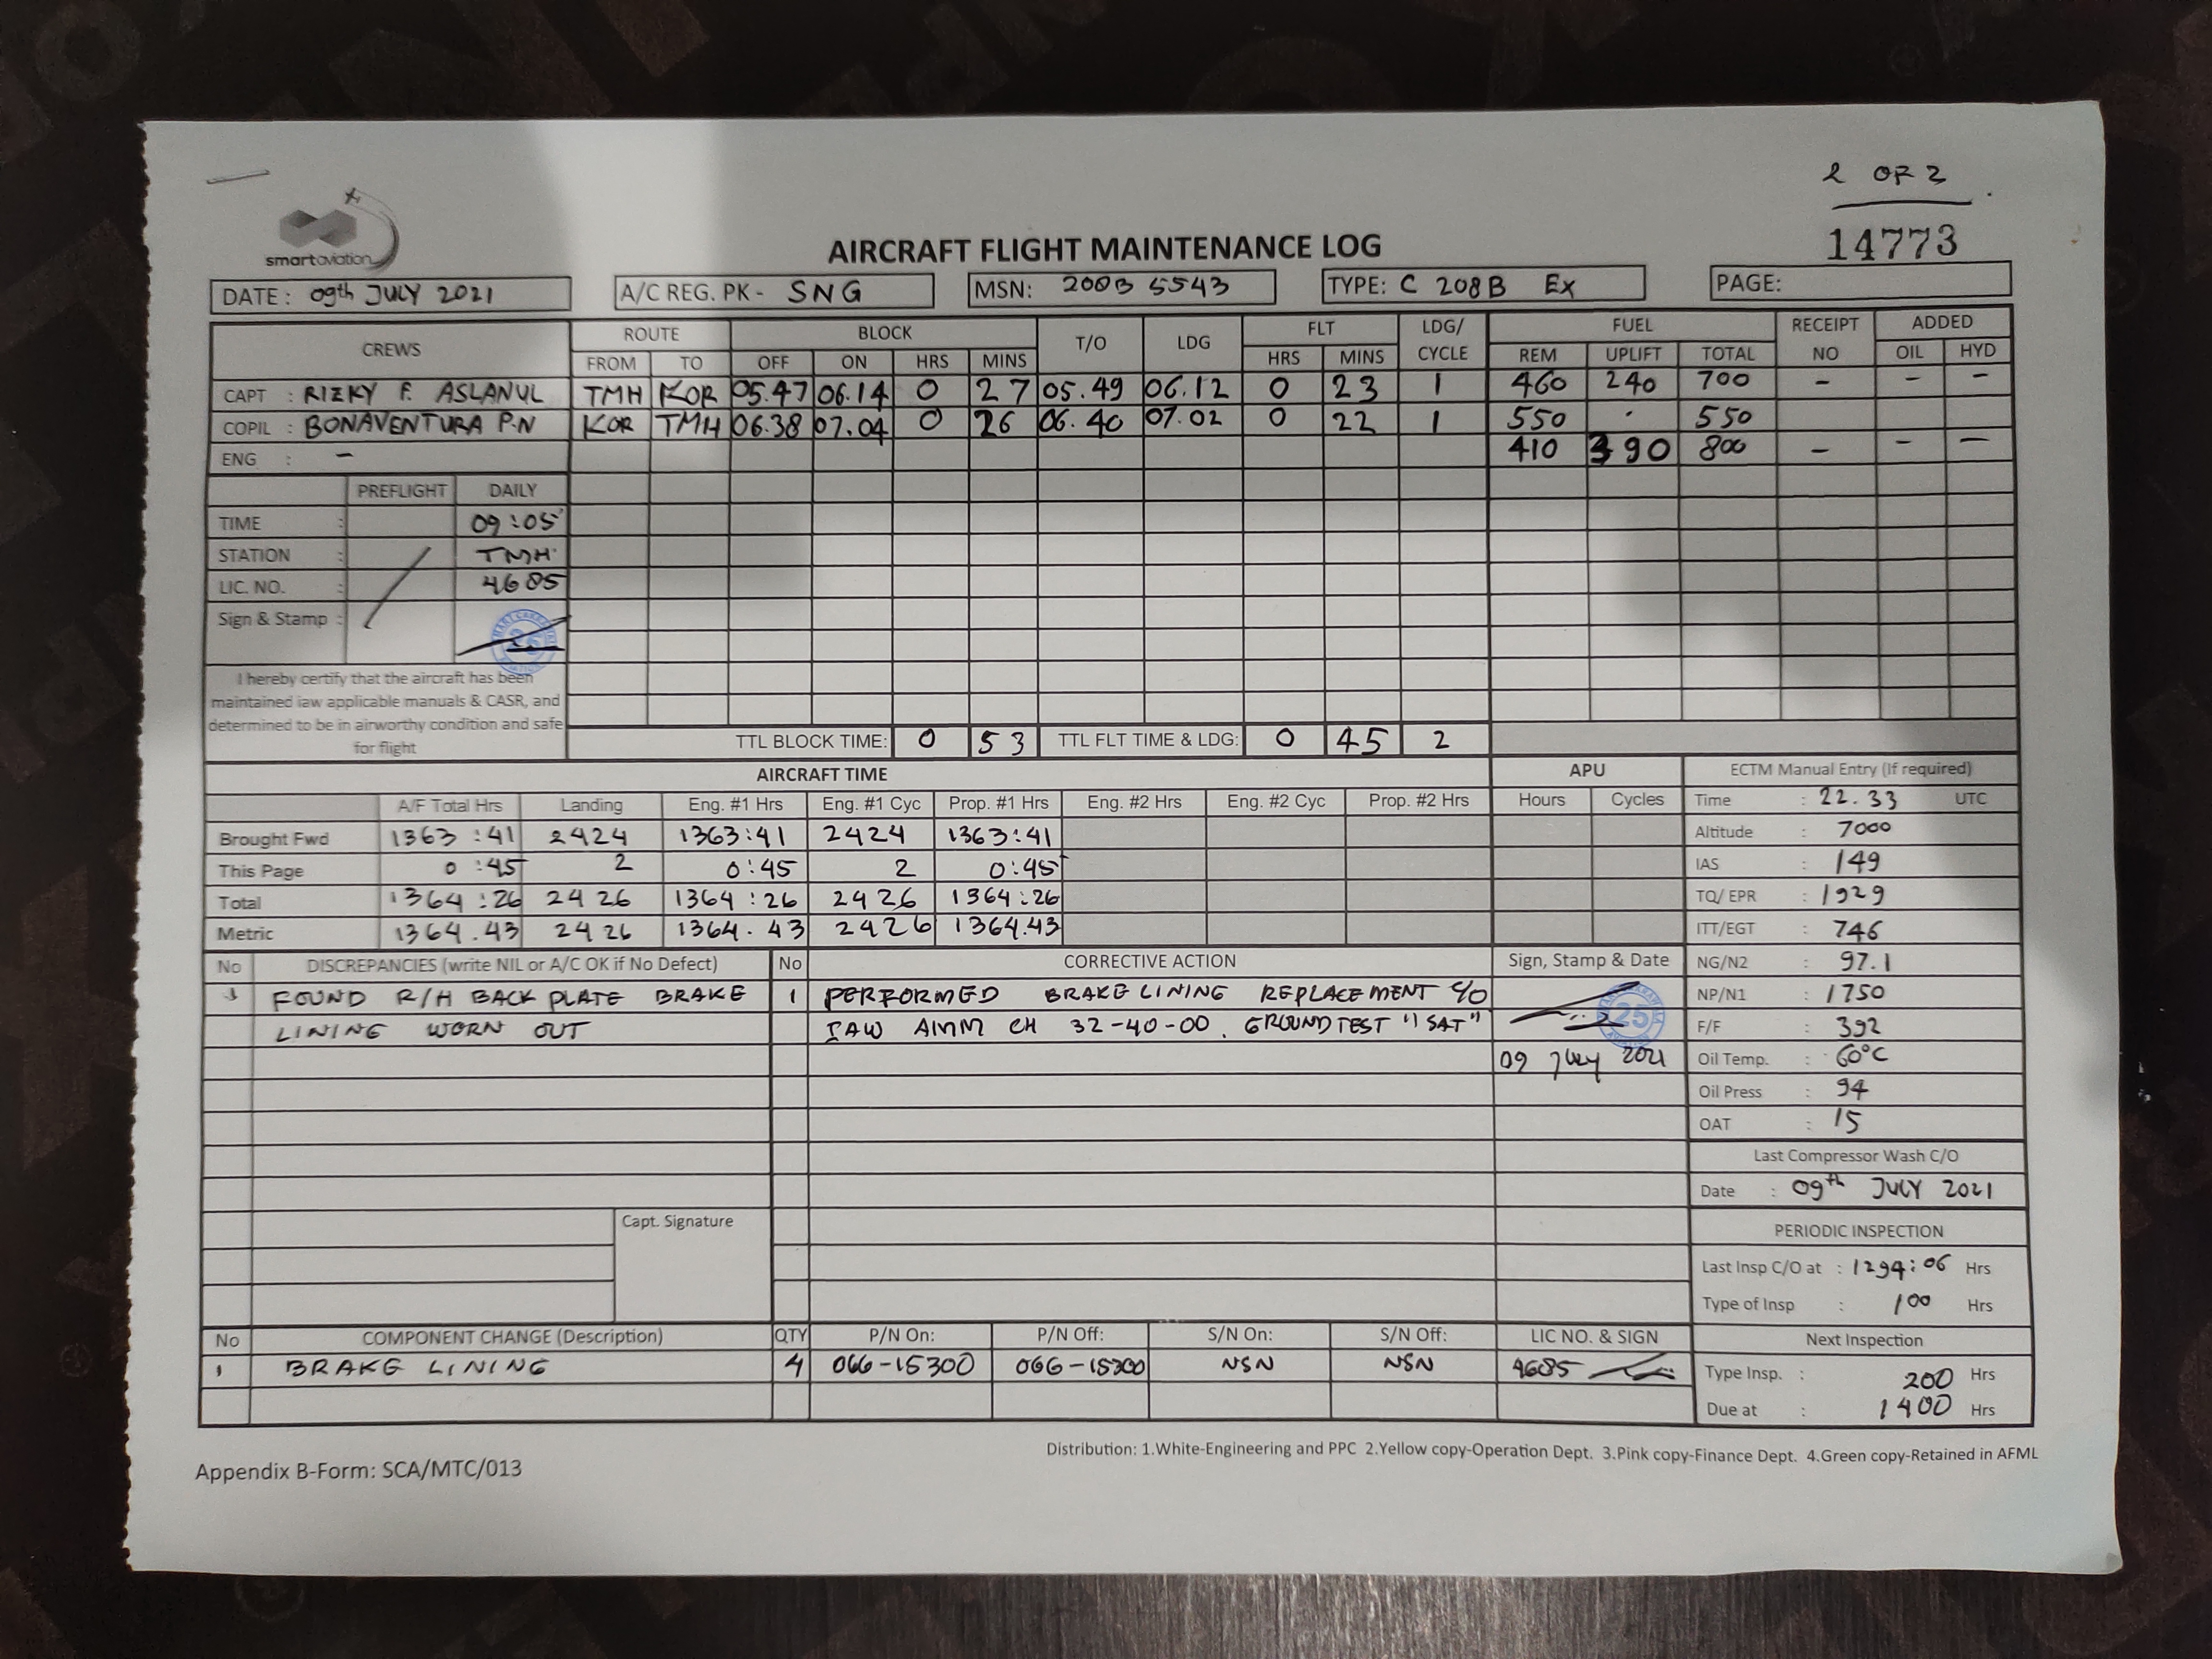 2 OF 2
14773
smartaviation
AIRCRAFT FLIGHT MAINTENANCE LOG
DATE : 09th JULY 2021 A/C REG. PK - SNG MSN: 208B 5543 TYPE: C 208B EX PAGE:
CREWS ROUTE BLOCK T/O LDG FLT LDG/ CYCLE FUEL RECEIPT NO ADDED
FROM TO OFF ON HRS MINS HRS MINS REM UPLIFT TOTAL OIL HYD
CAPT : RIZKY F. ASLANUL TMH KOR 05.47 06.14 0 27 05.49 06.12 0 23 1 460 240 700 - - -
COPIL : BONAVENTURA P.N KOR TMH 06.38 07.04 0 26 06.40 07.02 0 22 1 550 · 550
ENG : - 410 390 800 - - -
PREFLIGHT DAILY
TIME : 09:05
STATION : TMH
LIC. NO. : 4685
Sign & Stamp :
I hereby certify that the aircraft has been
maintained iaw applicable manuals & CASR, and
determined to be in airworthy condition and safe
for flight
TTL BLOCK TIME: 0 53 TTL FLT TIME & LDG: 0 45 2
AIRCRAFT TIME APU ECTM Manual Entry (If required)
A/F Total Hrs Landing Eng. #1 Hrs Eng. #1 Cyc Prop. #1 Hrs Eng. #2 Hrs Eng. #2 Cyc Prop. #2 Hrs Hours Cycles Time : 22.33 UTC
Brought Fwd 1363:41 2424 1363:41 2424 1363:41 Altitude : 7000
This Page 0:45 2 0:45 2 0:45 IAS : 149
Total 1364:26 2426 1364:26 2426 1364:26 TQ/ EPR : 1929
Metric 1364.43 2426 1364.43 2426 1364.43 ITT/EGT : 746
No DISCREPANCIES (write NIL or A/C OK if No Defect) No CORRECTIVE ACTION Sign, Stamp & Date NG/N2 : 97.1
1 FOUND R/H BACK PLATE BRAKE 1 PERFORMED BRAKE LINING REPLACEMENT C/O NP/N1 : 1750
LINING WORN OUT IAW AMM CH 32-40-00. GROUND TEST "SAT" 25 F/F : 392
09 July 2021 Oil Temp. : 60°C
Oil Press : 94
OAT : 15
Last Compressor Wash C/O
Date : 09th JULY 2021
Capt. Signature PERIODIC INSPECTION
Last Insp C/O at : 1294:06 Hrs
Type of Insp : 100 Hrs
No COMPONENT CHANGE (Description) QTY P/N On: P/N Off: S/N On: S/N Off: LIC NO. & SIGN Next Inspection
1 BRAKE LINING 4 066-15300 066-15300 NSN NSN 4685 Type Insp. : 200 Hrs
Due at : 1400 Hrs
Distribution: 1.White-Engineering and PPC 2.Yellow copy-Operation Dept. 3.Pink copy-Finance Dept. 4.Green copy-Retained in AFML
Appendix B-Form: SCA/MTC/013